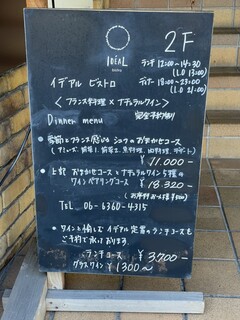 IDÉAL
bistro
2F
ランチ 12:00〜14:30
(L.O 13:00)
ディナー 18:00〜23:00
(L.O 21:00)
イデアル ビストロ
〈フランス料理 × ナチュラルワイン〉
完全予約制
Dinner menu
・季節とフランス感じる シェフのおまかせコース
(アミューズ、前菜1、前菜2、魚料理、肉料理、デザート)
¥11.000-
・上記 おまかせコース + ナチュラルワイン5種の
ワインペアリングコース ¥18.320-
Tel 06-6360-4315
・ワインと愉しむ イデアル定番のランチコースも
ご予約で承ります。
ランチコース ¥3,700-
グラスワイン ¥1300〜